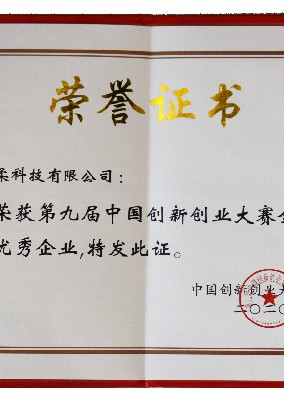 荣誉证书
柔科技有限公司：
荣获第九届中国创新创业大赛全
优秀企业，特发此证。
中国创新创业大
二〇二〇